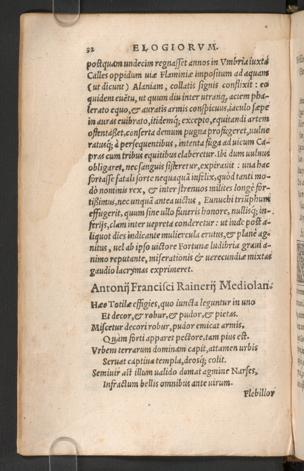 32 ELOGIORVM.
postquam undecim regnasset annos in Vmbria iuxta
Calles oppidum uiæ Flaminiæ impositum ad aquam
(ut dicunt) Alaniam, collatis signis conflixit: eo
quidem euẽtu, ut quum diu inter utranq; aciem pha-
lerato equo, & auratis armis conspicuus, iaculo sæpe
in auras euibrato, itidemq; excepto, equitandi artem
ostentasset, conserta demum pugna profugeret, uulne
ratusq; à persequentibus, intenta fuga ad uicum Ca-
pras cum tribus equitibus elaberetur. Ibi dum uulnus
obligaret, nec sanguis sisteretur, expirauit: una hac
fortasse fatali sorte nequaquã infelix, quòd tanti mo-
dò nominis rex, & inter strenuos milites longè for-
tissimus, nec unquã antea uictus, Eunuchi triũphum
effugerit, quum sine ullo funeris honore, nullisq; in-
ferijs, clam inter uepreta conderetur: ut inde post a-
liquot dies indicante muliercula erutus, & planè ag-
nitus, uel ab ipso uictore Fortunæ ludibria graui a-
nimo reputante, miserationis & uerecundiæ mixtas
gaudio lacrymas exprimeret.
Antonij Francisci Rainerij Mediolan.
Hæc Totilæ effigies, quo iuncta leguntur in uno
Et decor, & robur, & pudor, & pietas.
Miscetur decori robur, pudor emicat armis,
Quàm forti appares pectore, tam pius est.
Vrbem terrarum dominam capit, attamen urbis
Seruat captiua templa, deosq; colit.
Semiuir ast illum ualido domat agmine Narses,
Infractum bellis omnibus ante uirum.
Flebilior